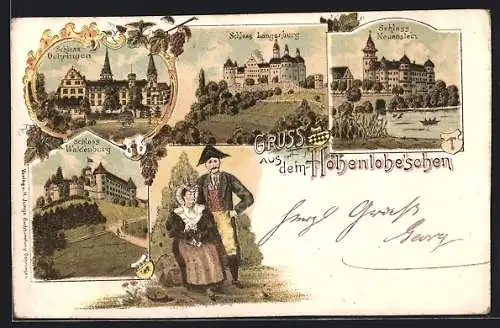 Schloss
Oehringen
Schloss Langenburg
Schloss
Neuenstein
Schloss
Waldenburg
GRUSS
aus
dem Hohenlohe'schen
Gruß
Georg